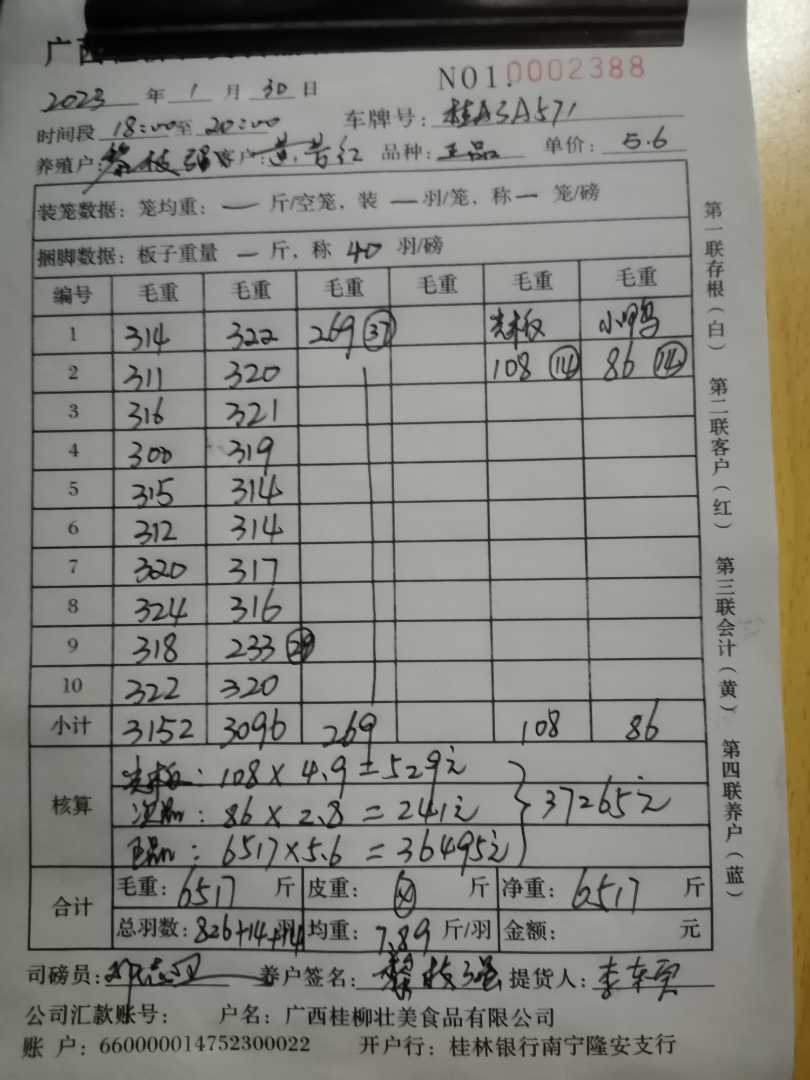 广西
NO1.0002388
2023 年 1 月 30 日
时间段 18:00至 20:00 车牌号: 桂A3A571
养殖户: 黎枝强 客户: 黄 红 品种: 正品 单价: 5.6
装笼数据: 笼均重: — 斤/空笼, 装 — 羽/笼, 称 — 笼/磅
捆脚数据: 板子重量 — 斤, 称 40 羽/磅
编号 毛重 毛重 毛重 毛重 毛重 毛重
1 314 322 269 37 光板 小鸭
2 311 320 108 14 86 14
3 316 321
4 300 319
5 315 314
6 312 314
7 320 317
8 324 316
9 318 233 29
10 322 320
小计 3152 3096 269 108 86
核算
光板: 108 × 4.9 = 529元
次品: 86 × 2.8 = 241元 } 37265元
正品: 6517×5.6 = 36495元
合计
毛重: 6517 斤 皮重: 斤 净重: 6517 斤
总羽数: 826+14+14 羽 均重: 7.89 斤/羽 金额: 元
司磅员: 养户签名: 黎枝强 提货人: 李
公司汇款账号: 户名: 广西桂柳壮美食品有限公司
账 户: 660000014752300022 开户行: 桂林银行南宁隆安支行
第一联存根(白) 第二联客户(红) 第三联会计(黄) 第四联养户(蓝)